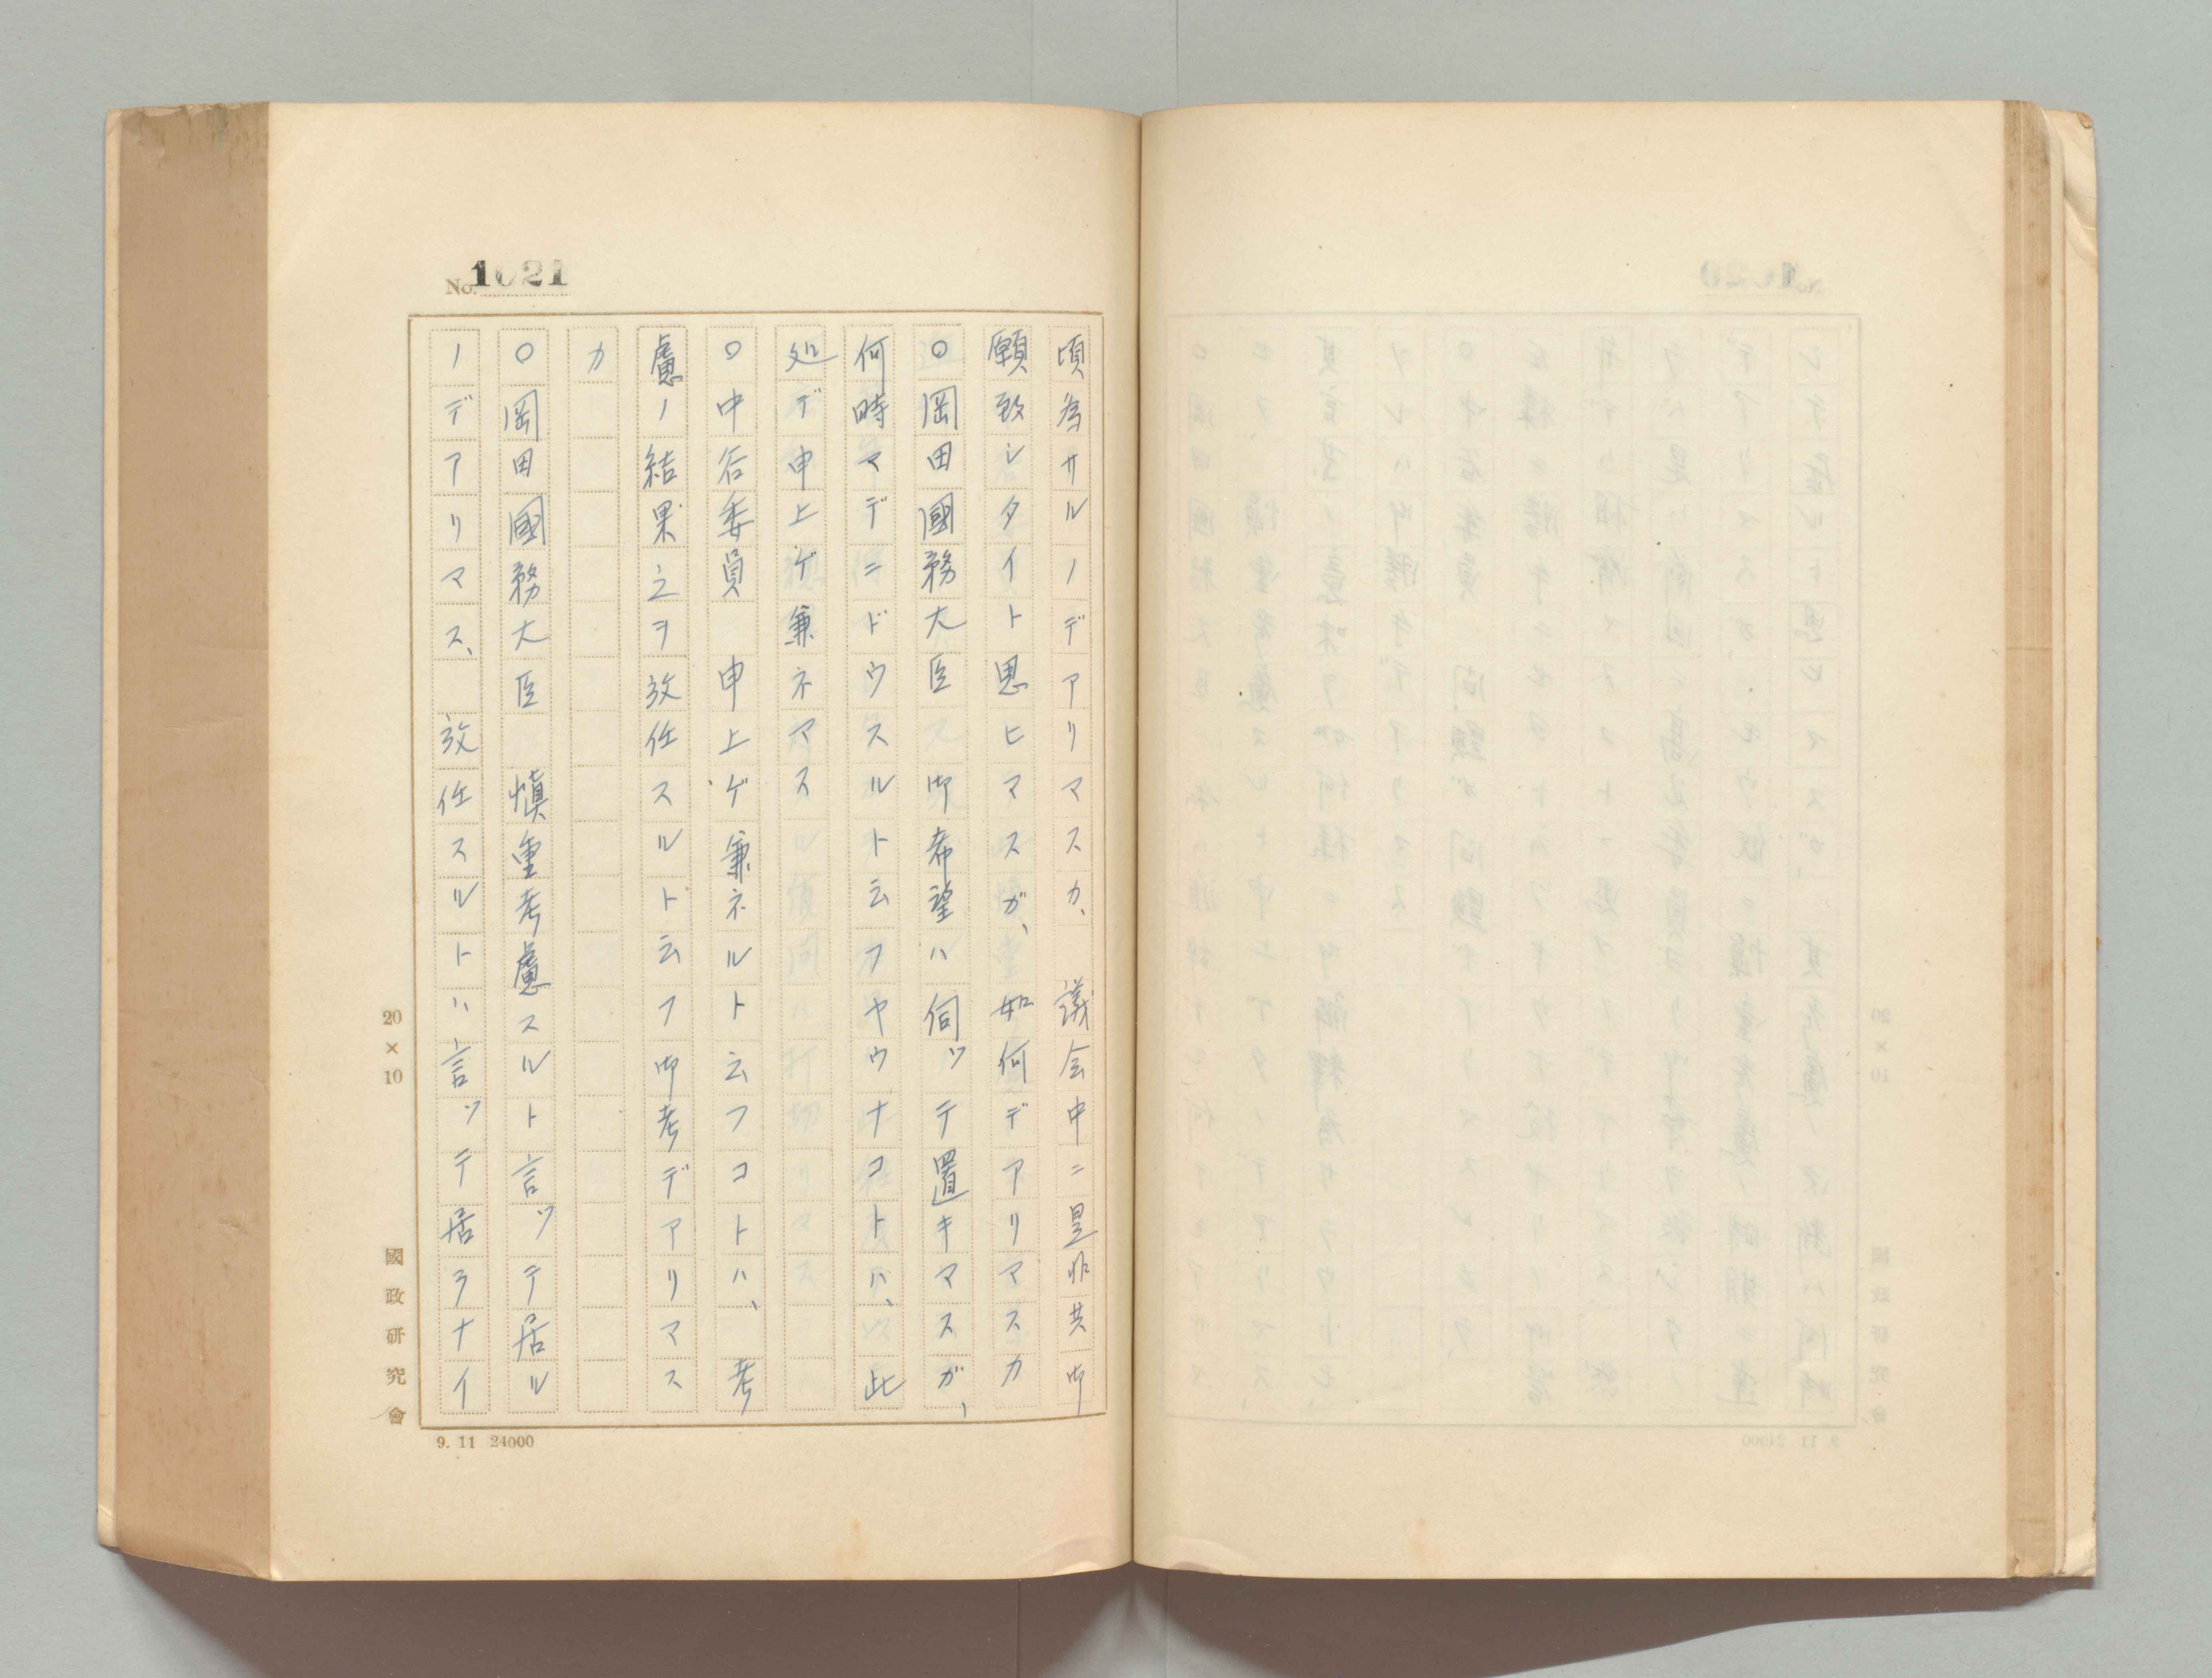 No. 1021
頃為サルノデアリマスカ、議会中ニ是非共御
願致シタイト思ヒマスガ、如何デアリマスカ
○岡田國務大臣　御希望ハ伺ツテ置キマスガ、
何時マデニドウスルト云フヤウナコトハ、此
処デ申上ゲ兼ネマス
○中谷委員　申上ゲ兼ネルト云フコトハ、考
慮ノ結果之ヲ放任スルト云フ御考デアリマス
カ
○岡田國務大臣　慎重考慮スルト言ツテ居ル
ノデアリマス、放任スルトハ言ツテ居ラナイ
20×10
國政研究會
9. 11 24000